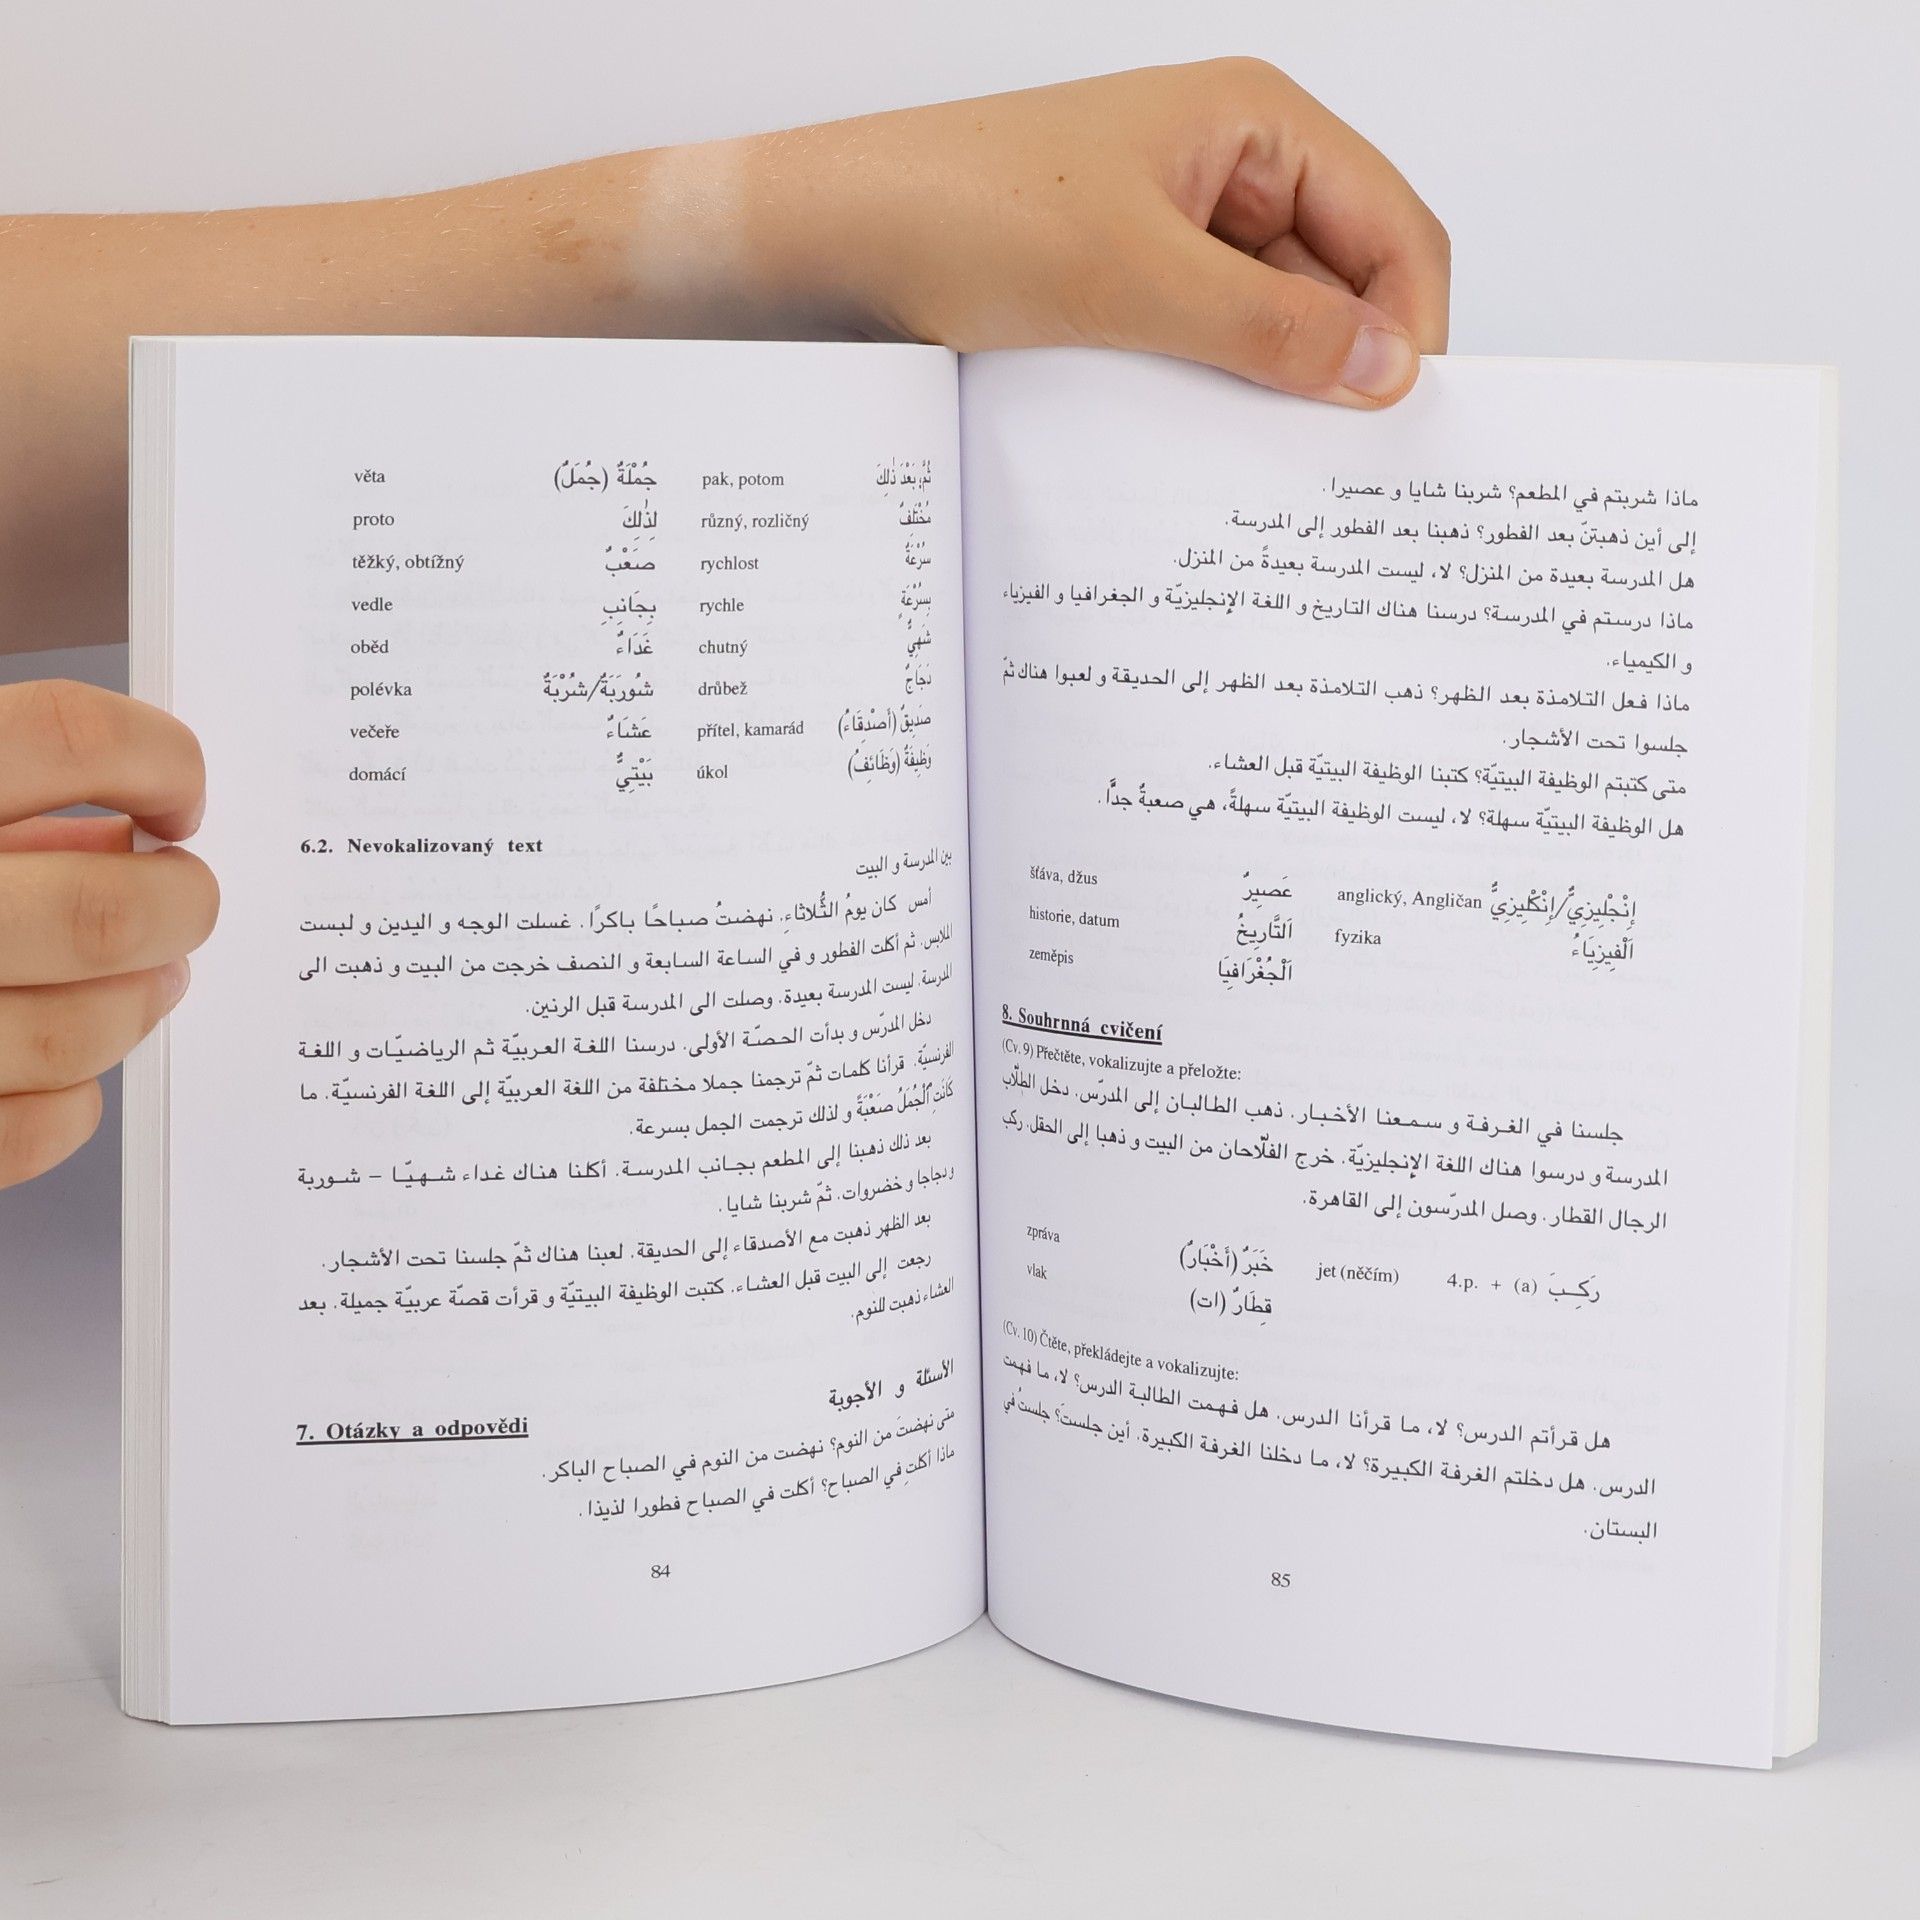 věta جُمْلَةٌ (جُمَلٌ) pak, potom ثُمَّ، بَعْدَ ذٰلِكَ
proto لِذٰلِكَ různý, rozličný مُخْتَلِفٌ
těžký, obtížný صَعْبٌ rychlost سُرْعَةٌ
vedle بِجَانِبِ rychle بِسُرْعَةٍ
oběd غَدَاءٌ chutný شَهِيٌّ
polévka شُورَبَةٌ/شُرْبَةٌ drůbež دَجَاجٌ
večeře عَشَاءٌ přítel, kamarád صَدِيقٌ (أَصْدِقَاءُ)
domácí بَيْتِيٌّ úkol وَظِيفَةٌ (وَظَائِفُ)
6.2. Nevokalizovaný text
بين المدرسة و البيت
أمس كان يومُ الثُّلاثاءِ. نهضتُ صباحًا باكرًا. غسلت الوجه و اليدين و لبست
الملابس. ثم أكلت الفطور و في الساعة السابعة و النصف خرجت من البيت و ذهبت الى
المدرسة. ليست المدرسة بعيدة. وصلت الى المدرسة قبل الرنين.
دخل المدرّس و بدأت الحصّة الأولى. درسنا اللغة العربيّة ثم الرياضيّات و اللغة
الفرنسيّة. قرأنا كلمات ثمّ ترجمنا جملا مختلفة من اللغة العربيّة إلى اللغة الفرنسيّة. ما
كَانَتِ ٱلْجُمَلُ صَعْبَةً و لذلك ترجمت الجمل بسرعة.
بعد ذلك ذهبنا إلى المطعم بجانب المدرسة. أكلنا هناك غداء شهيّا – شوربة
و دجاجا و خضروات. ثمّ شربنا شايا.
بعد الظهر ذهبت مع الأصدقاء إلى الحديقة. لعبنا هناك ثمّ جلسنا تحت الأشجار.
رجعت إلى البيت قبل العشاء. كتبت الوظيفة البيتيّة و قرأت قصّة عربيّة جميلة. بعد
العشاء ذهبت للنوم.
7. Otázky a odpovědi الأسئلة و الأجوبة
متى نهضتَ من النوم؟ نهضت من النوم في الصباح الباكر.
ماذا أكلتِ في الصباح؟ أكلت في الصباح فطورا لذيذا.
84
ماذا شربتم في المطعم؟ شربنا شايا و عصيرا.
إلى أين ذهبتنّ بعد الفطور؟ ذهبنا بعد الفطور إلى المدرسة.
هل المدرسة بعيدة من المنزل؟ لا، ليست المدرسة بعيدةً من المنزل.
ماذا درستم في المدرسة؟ درسنا هناك التاريخ و اللغة الإنجليزيّة و الجغرافيا و الفيزياء
و الكيمياء.
ماذا فعل التلامذة بعد الظهر؟ ذهب التلامذة بعد الظهر إلى الحديقة و لعبوا هناك ثمّ
جلسوا تحت الأشجار.
متى كتبتم الوظيفة البيتيّة؟ كتبنا الوظيفة البيتيّة قبل العشاء.
هل الوظيفة البيتيّة سهلة؟ لا، ليست الوظيفة البيتيّة سهلةً، هي صعبةٌ جدًّا.
šťáva, džus عَصِيرٌ anglický, Angličan إِنْجْلِيزِيٌّ/إِنْكْلِيزِيٌّ
historie, datum اَلتَّارِيخُ fyzika اَلْفِيزِيَاءُ
zeměpis اَلْجُغْرَافِيَا
8. Souhrnná cvičení
(Cv. 9) Přečtěte, vokalizujte a přeložte:
جلسنا في الغرفة و سمعنا الأخبار. ذهب الطالبان إلى المدرّس. دخل الطلّاب
المدرسة و درسوا هناك اللغة الإنجليزيّة. خرج الفلّاحان من البيت و ذهبا إلى الحقل. ركب
الرجال القطار. وصل المدرّسون إلى القاهرة.
zpráva خَبَرٌ (أَخْبَارٌ) jet (něčím) 4.p. + (a) رَكِبَ
vlak قِطَارٌ (ات)
(Cv. 10) Čtěte, překládejte a vokalizujte:
هل قرأتم الدرس؟ لا، ما قرأنا الدرس. هل فهمت الطالبة الدرس؟ لا، ما فهمت
الدرس. هل دخلتم الغرفة الكبيرة؟ لا، ما دخلنا الغرفة الكبيرة. أين جلستَ؟ جلستُ في
البستان.
85